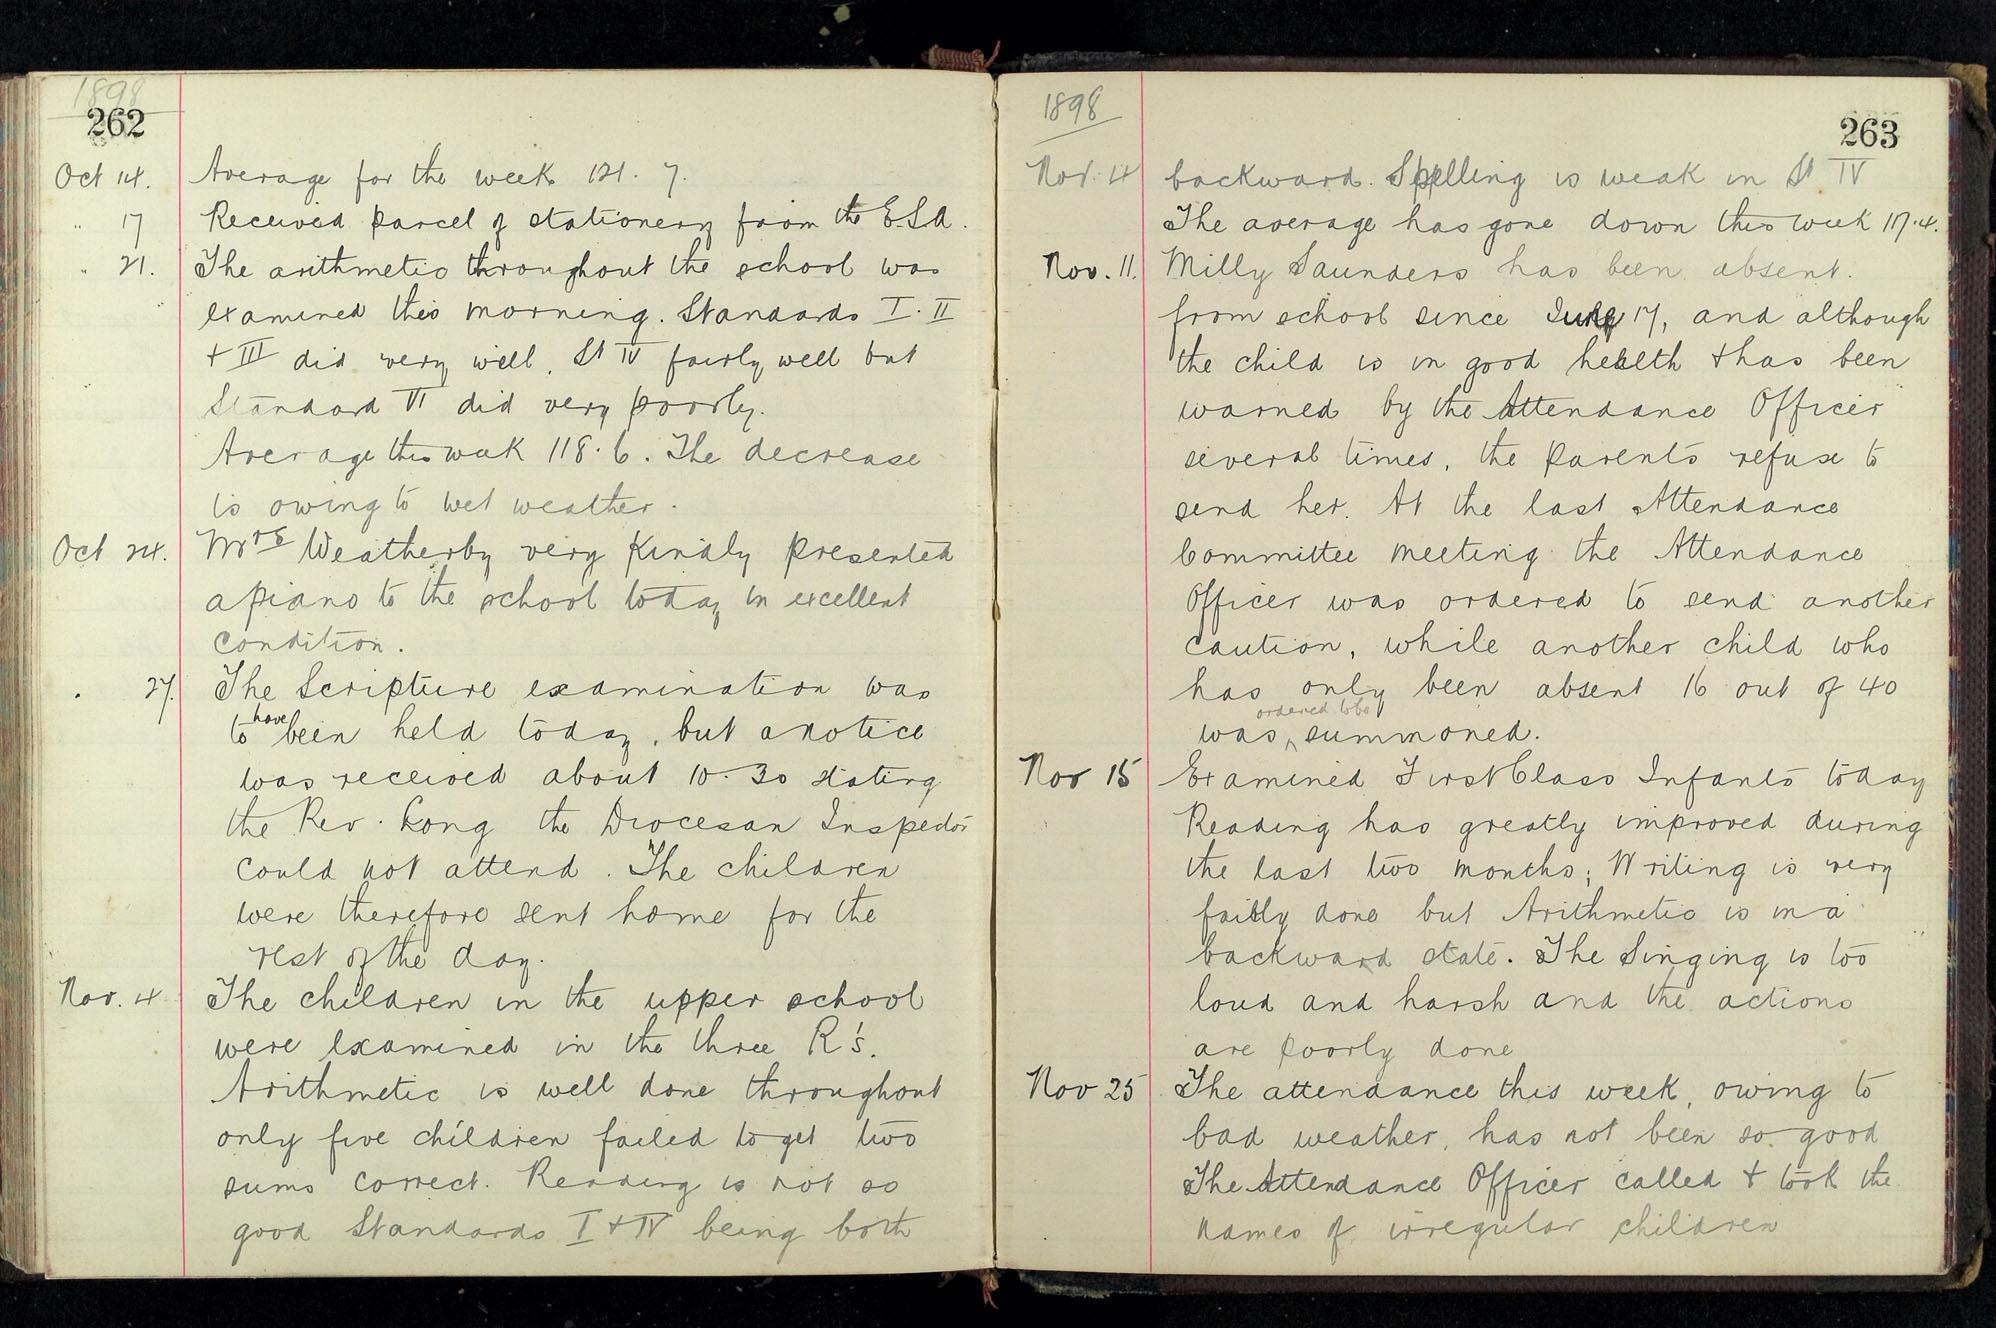 1898
262
Oct 14. Average for the week 121. 7.
" 17 Received parcel of stationery from the E.S.A.
" 21. The arithmetic throughout the school was
examined this morning. Standards I. II
+ III did very well, St IV fairly well but
Standard VI did very poorly.
Average this week 118. 6. The decrease
is owing to wet weather.
Oct 24. Mrs Weatherby very kindly presented
a piano to the school today in excellent
condition.
" 27. The Scripture examination was
to have been held today, but a notice
was received about 10.30 stating
the Rev. Long the Diocesan Inspector
could not attend. The children
were therefore sent home for the
rest of the day.
Nov. 4 The children in the upper school
were examined in the three R's.
Arithmetic is well done throughout
only five children failed to get two
sums correct. Reading is not so
good Standards I + IV being both
1898
263
Nov. 4 backward. Spelling is weak in St IV
The average has gone down this week 117.4.
Nov. 11. Milly Saunders has been absent.
from school since June 17, and although
the child is in good health + has been
warned by the Attendance Officer
several times, the parents refuse to
send her. At the last Attendance
Committee meeting the Attendance
Officer was ordered to send another
caution, while another child who
has only been absent 16 out of 40
was ordered to be summoned.
Nov 15 Examined First Class Infants today
Reading has greatly improved during
the last two months; Writing is very
fairly done but Arithmetic is in a
backward state. The Singing is too
loud and harsh and the actions
are poorly done
Nov 25 The attendance this week, owing to
bad weather, has not been so good
The Attendance Officer called + took the
names of irregular children